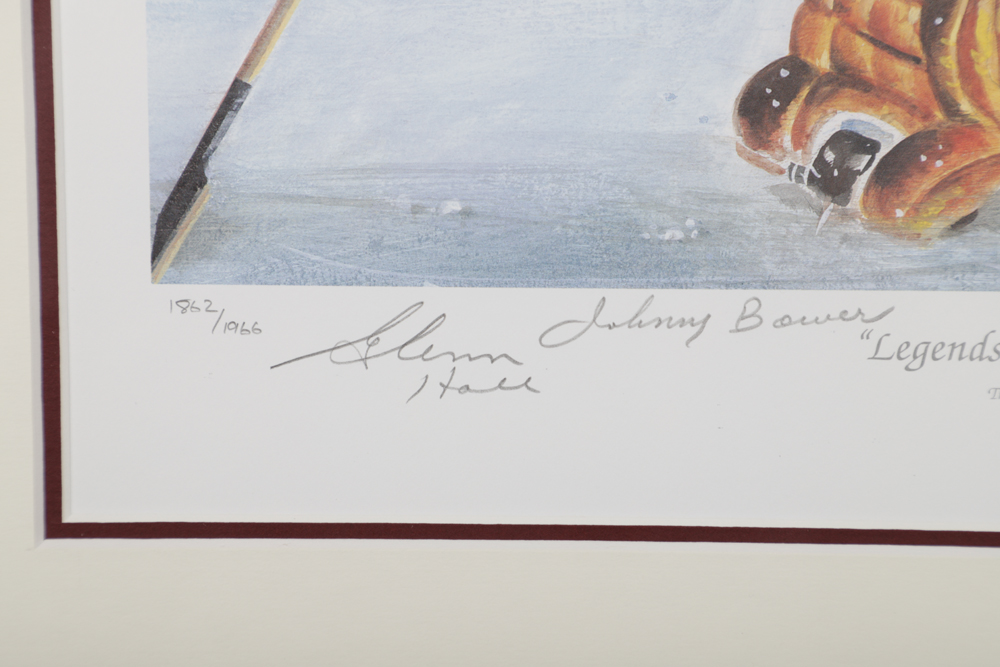 1862/1966
Glenn
Hall
Johnny Bower
"Legends